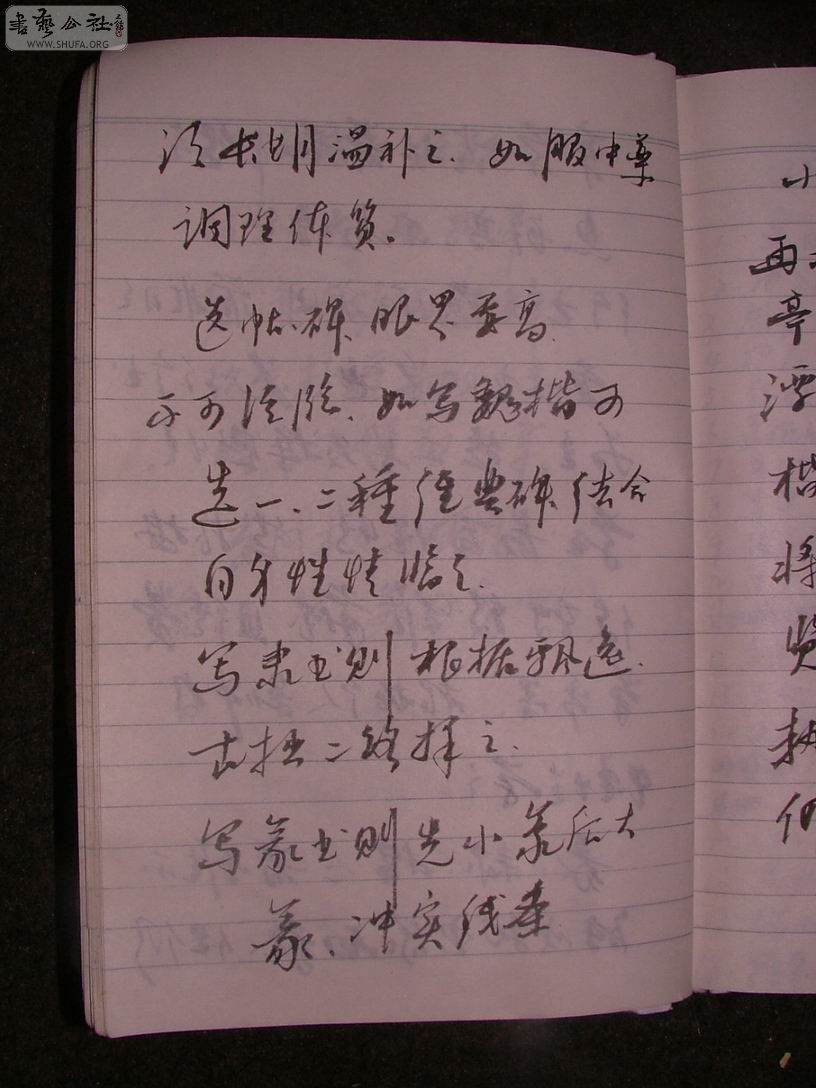 書藝公社
WWW.SHUFA.ORG
须长期温补之.如服中药
调理体质.
选帖.碑.眼界要高.
不可滥临.如写魏楷可
选一、二種经典碑.结合
自身性情临之.
写隶书则根据飘逸.
古拙二路择之.
写篆书则先小篆后大
篆、冲实线条
小
两
亭
漂
楷
将
贤